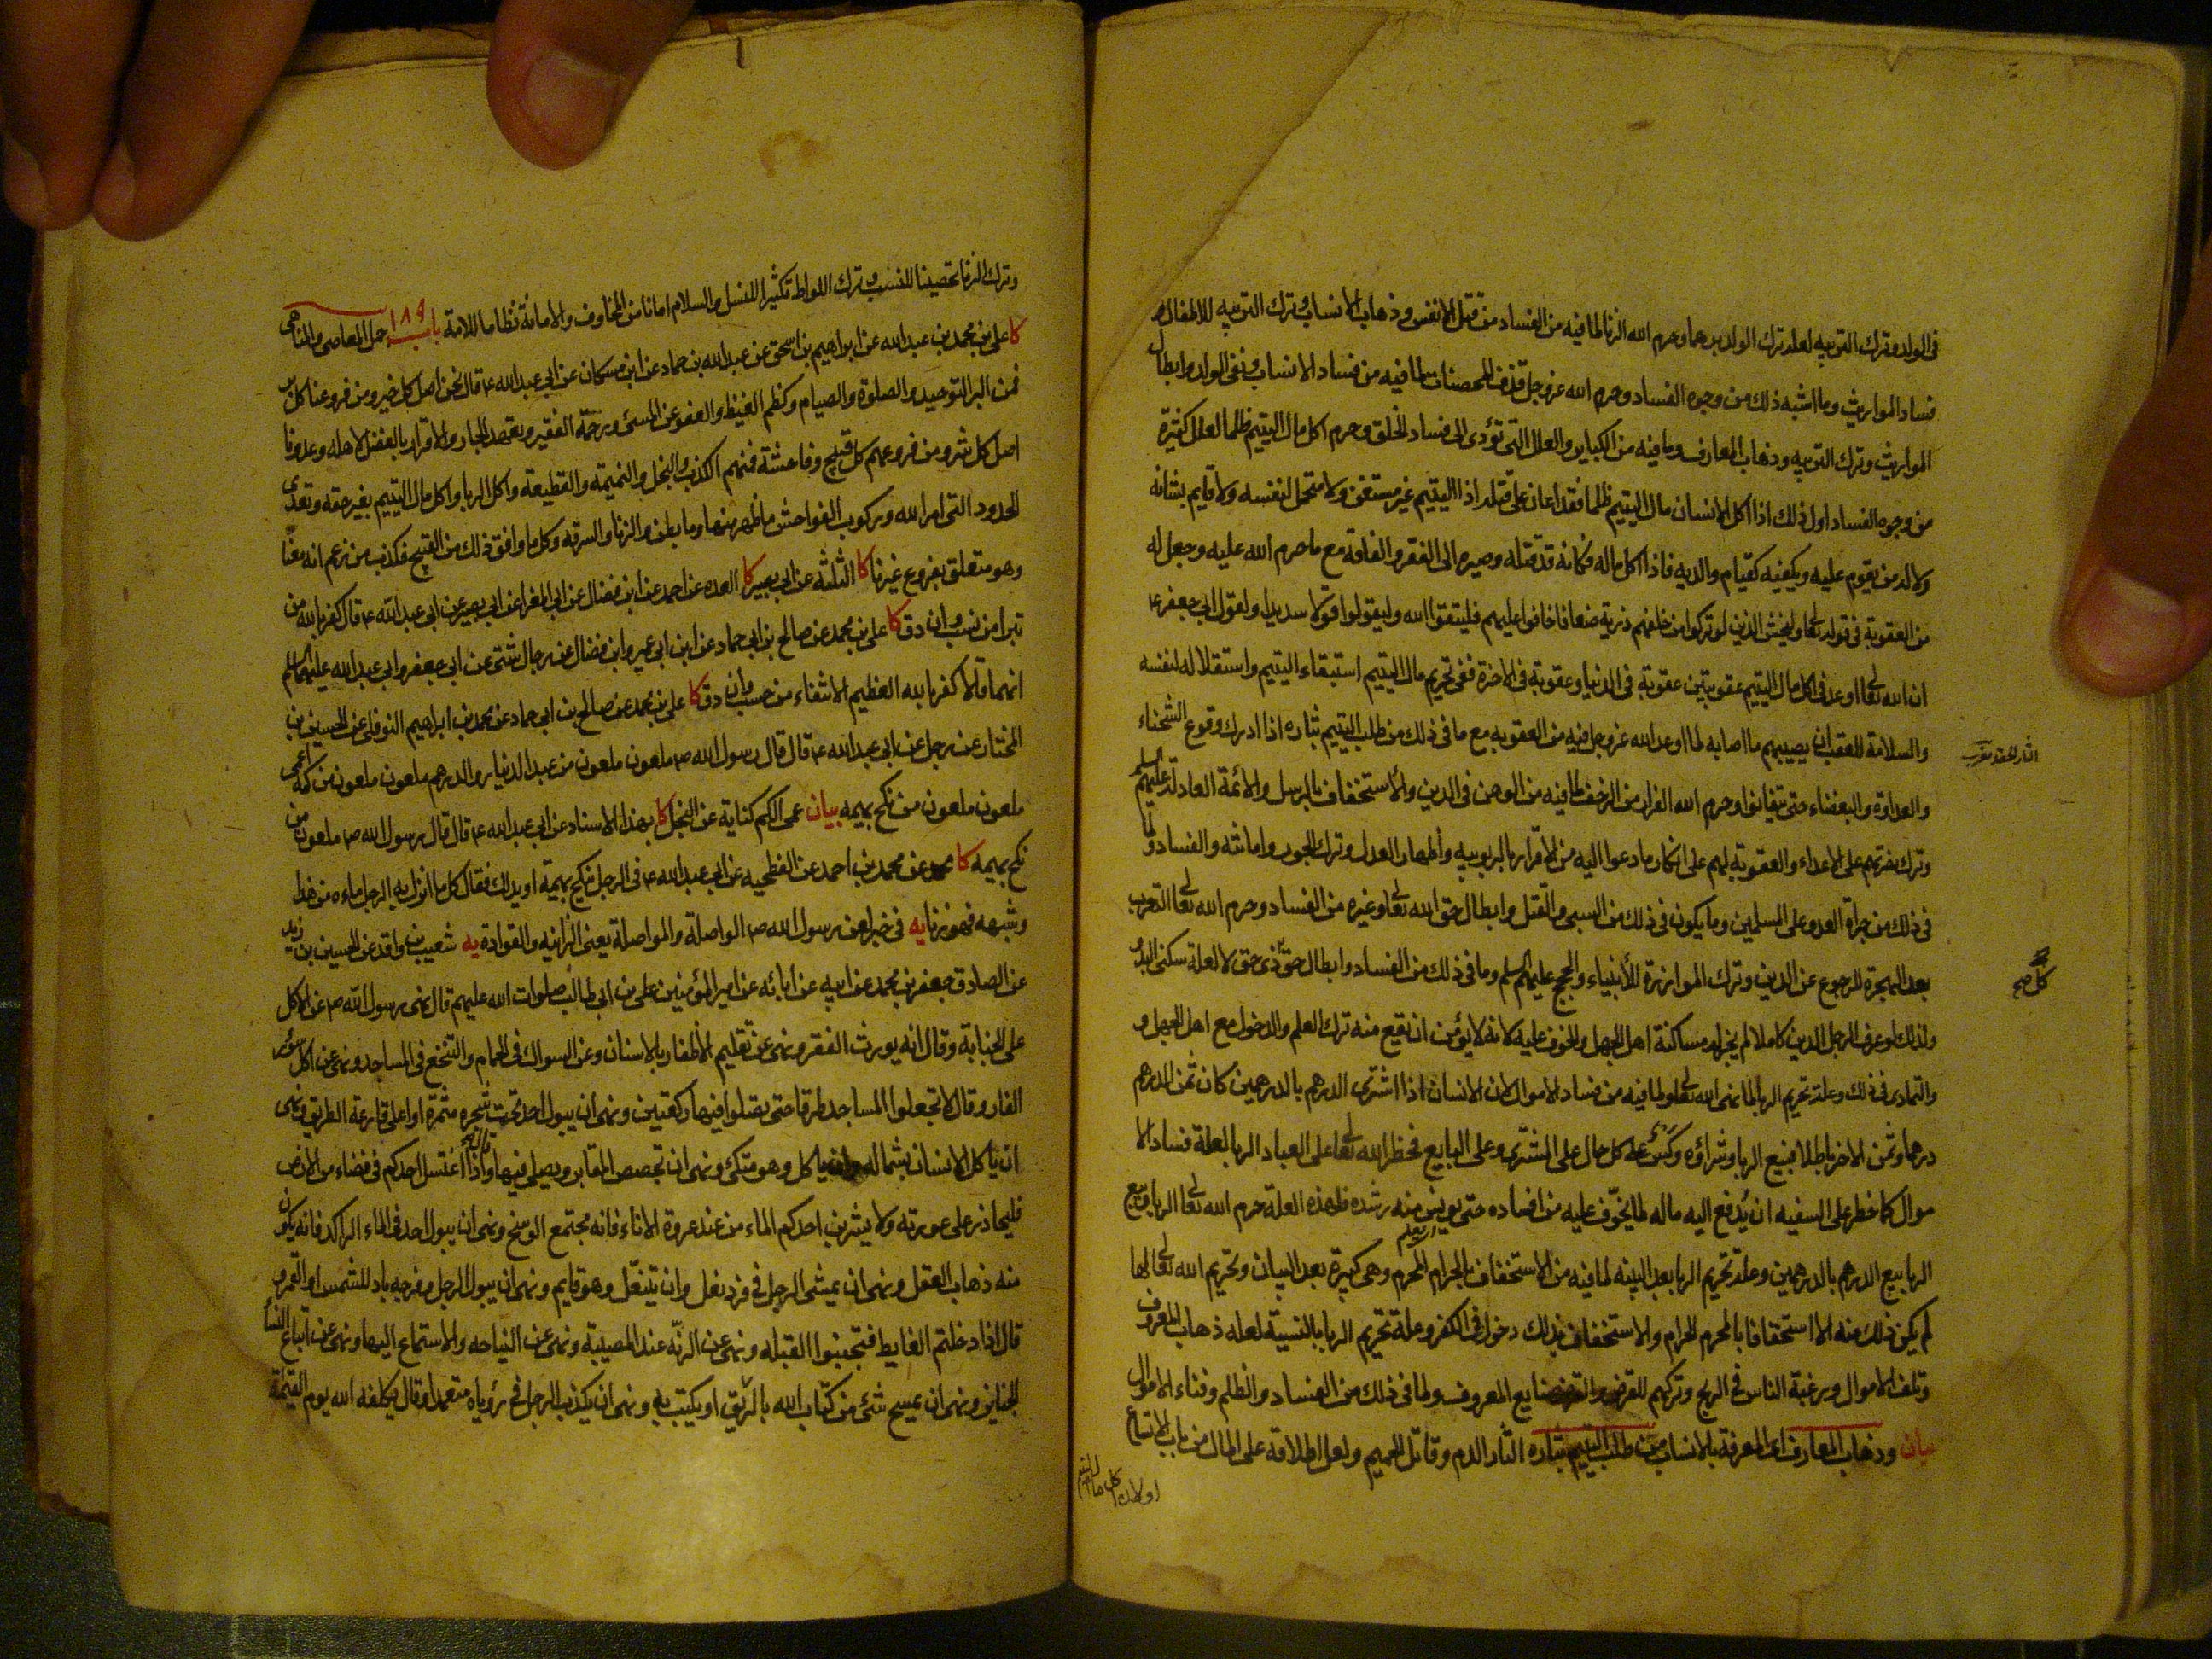 في الولد وترك التربيه لعلة ترك الولد برهما وحرم الله الزنا لما فيه من الفساد من قتل الانفس وذهاب الانساب وترك التربيه للاطفال و
فساد المواريث وما اشبه ذلك من وجوه الفساد وحرم الله عز وجل قذف المحصنات لما فيه من فساد الانساب ونفى الولد وابطال
المواريث وترك التربيه وذهاب المعارف وما فيه من الكباير والعلل التى تؤدى الى فساد الخلق وحرم اكل مال اليتيم ظلما لعلل كثيرة
من وجوه الفساد اول ذلك اذا اكل الانسان مال اليتيم ظلما فقد اعان على قتله اذ اليتيم غير مستغن ولا متحمل لنفسه ولا قايم بشانه
ولا له من يقوم عليه ويكفيه كقيام والديه فاذا اكل ماله فكانه قد قتله وصيره الى الفقر والفاقة مع ما حرم الله عليه وجعل له
من العقوبة في قوله تعالى وليخش الذين لو تركوا من خلفهم ذرية ضعافا خافوا عليهم فليتقوا الله وليقولوا قولا سديدا ولقول ابى جعفر ع
ان الله تعالى اوعد في اكل مال اليتيم عقوبتين عقوبة في الدنيا وعقوبة في الاخرة ففى تحريم مال اليتيم استبقاء اليتيم واستقلاله لنفسه
والسلامة للعقب ان يصيبهم ما اصابه لما اوعد الله عز وجل فيه من العقوبه مع ما فى ذلك من طلب اليتيم بثاره اذا ادرك وقوع الشحناء
والعداوة والبغضاء حتى يتفانوا وحرم الله الفرار من الزحف لما فيه من الوهن فى الدين والاستخفاف بالرسل والائمة العادلة عليهم السلم
وترك نصرتهم على الاعداء والعقوبة لهم على انكار ما دعوا اليه من الاقرار بالربوبيه واظهار العدل وترك الجور واماتته والفساد ولما
فى ذلك من جراة العدو على المسلمين وما يكون فى ذلك من السبى والقتل وابطال حق الله تعالى وغيره من الفساد وحرم الله تعالى التعرب
بعد الهجرة للرجوع عن الدين وترك الموازرة للأنبياء والحجج عليهم السلم وما فى ذلك من الفساد وابطال حق ذى حق لا لعلة سكنى البدو
ولذلك لو عرف الرجل الدين كاملا لم يجز له مساكنة اهل الجهل والخوف عليه لانه لا يؤمن ان يقع منه ترك العلم والدخول مع اهل الجهل و
والتمادى فى ذلك وعلة تحريم الربا لما نهى الله تعالى ولما فيه من فساد الاموال لان الانسان اذا اشترى الدرهم بالدرهمين كان ثمن الدرهم
درهما وثمن الاخر باطلا فبيع الربا وشراؤه وكس على كل حال على المشترى وعلى البايع فحظر الله تعالى على العباد الربا لعلة فساد الا
موال كما حظر على السفيه ان يدفع اليه ماله لما يتخوف عليه من افساده حتى يونس منه رشده فلهذه العلة حرم الله تعالى الربا وبيع
الربا بيع الدرهم بالدرهمين وعلة تحريم الربا بعد البينه لما فيه من الاستخفاف بالحرام المحرم وهى كبيرة بعد البيان وتحريم الله تعالى لها
لم يكن ذلك منه الا استخفافا بالمحرم الحرام والاستخفاف بذلك دخول فى الكفر وعلة تحريم الربا بالنسية لعلة ذهاب المعروف
وتلف الاموال ورغبة الناس فى الربح وتركهم للقرض والقرض صنايع المعروف ولما فى ذلك من الفساد والظلم وفناء الاموال
بيان وذهاب المعارف اى المعرفة بالانساب من طلب اليتيم بثاره الثار الدم وقاتل الحميم ولعل اطلاقه على المال من باب الاتساع
كل صح
وترك الزنا تحصينا للنسب وترك اللواط تكثيرا للنسل والسلام امانا من المخاوف والامانة نظاما للامة باب ١٨٩ جمل المعاصى والمناهى
كا على بن محمد بن عبد الله عن ابراهيم بن اسحق عن عبد الله بن حماد عن ابن مسكان عن ابى عبد الله ع قال نحن اصل كل خير ومن فروعنا كل بر
فمن البر التوحيد والصلوة والصيام وكظم الغيظ والعفو عن المسئ ورحمة الفقير وتعهد الجار والاقرار بالفضل لاهله وعدونا
اصل كل شر ومن فروعهم كل قبيح وفاحشة فمنهم الكذب والبخل والنميمة والقطيعة واكل الربا واكل مال اليتيم بغير حقه وتعدى
الحدود التى امر الله وركوب الفواحش ما ظهر منها وما بطن والزنا والسرقه وكل ما وافق ذلك من القبيح فكذب من زعم انه معنا
وهو متعلق بفروع غيرنا كا الثلثه عن ابى بصير كا العده عن احمد عن ابن فضال عن ابى المغرا عن ابى بصير عن ابى عبد الله ع قال كفر بالله من
تبرا من نسب وان دق كا على بن محمد عن صالح بن ابى حماد عن ابن ابى عمير وابن فضال عن رجال شتى عن ابى جعفر وابى عبد الله عليهما السلم
انهما قالا كفر بالله العظيم الانتفاء من حسب وان دق كا على بن محمد عن صالح بن ابى حماد عن محمد بن ابراهيم النوفلى عن الحسين بن
المختار عن رجل عن ابى عبد الله ع قال قال رسول الله ص ملعون ملعون من عبد الدنيار والدرهم ملعون ملعون من كمه اعمى
ملعون ملعون من نكح بهيمه بيان عمى الكم كناية عن البخل كا بهذا الاسناد عن ابى عبد الله ع قال قال رسول الله ص ملعون من
نكح بهيمه كا محمد عن محمد بن احمد عن الفطحيه عن ابى عبد الله ع فى الرجل ينكح بهيمة او يدلك فقال كل ما انزل به الرجل ماءه من هذا
وشبهه فهو زنا يه فى خبر لعن رسول الله ص الواصلة والمواصلة يعنى الزانيه والقوادة يه شعيب بن واقد عن الحسين بن زيد
عن الصادق جعفر بن محمد عن ابيه عن ابائه عن امير المؤمنين على بن ابى طالب صلوات الله عليهم قال نهى رسول الله ص عن الاكل
على الجنابة وقال انه يورث الفقر ونهى عن تقليم الاظفار بالاسنان وعن السواك فى الحمام والتنخع فى المساجد ونهى عن اكل سؤر
الفار وقال لا تجعلوا المساجد طرقا حتى تصلوا فيها ركعتين ونهى ان يبول احد تحت شجره مثمرة او على قارعة الطريق ونهى
ان ياكل الانسان بشماله وان ياكل وهو متكئ ونهى ان تجصص المقابر ويصلى فيها وقال اذا اغتسل احدكم فى فضاء من الارض
فليحاذر على عورته ولا يشربن احدكم الماء من عند عروة الاناء فانه مجتمع الوسخ ونهى ان يبول احد فى الماء الراكد فانه يكون
منه ذهاب العقل ونهى ان يمشى الرجل فى فرد نعل وان يتنعل وهو قايم ونهى ان يبول الرجل وفرجه باد للشمس او القمر و
قال اذا دخلتم الغايط فتجنبوا القبله ونهى عن الرنه عند المصيبة ونهى عن النياحه والاستماع اليها ونهى عن اتباع النسا
الجنايز ونهى ان يمسح شئ من كتاب الله بالريق او يكتب به ونهى ان يكذب الرجل فى رؤياه متعمدا وقال يكلفه الله يوم القيمة